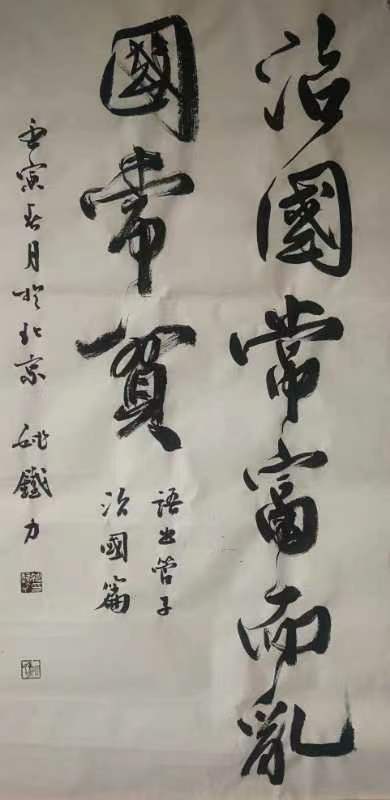 治國常富而亂
國常貧
語出管子
治國篇
壬寅春月於北京 姚鐵力